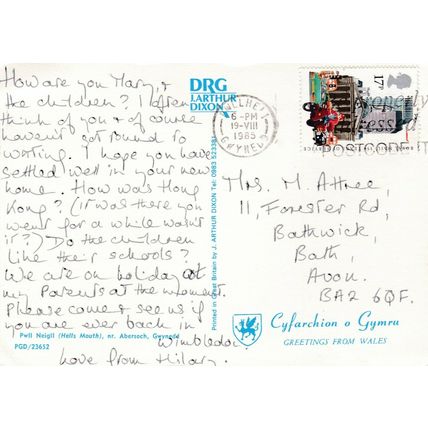 How are you Mary, &
the children? I often
think of you & of course
haven't got round to
writing. I hope you have
settled well in your new
home. How was Hong
Kong? (it was there you
went for a while wasn't
it?) Do the children
like their schools?
We are on holiday at
my Parents at the moment.
Please come & see us if
you are ever back in
Wimbledon
Love from Hilary.
Pwll Neigil (Hells Mouth), nr. Abersoch, Gwynedd
PGD/23652
DRG
J. ARTHUR
DIXON
Printed in Great Britain by J. ARTHUR DIXON Tel: 0983 523381
PWLLHELI
6-PM
19-VIII
1985
GWYNEDD
17P
Mrs. M. Attree,
11, Forester Rd,
Bathwick,
Bath,
Avon.
BA2 6QF.
Cyfarchion o Gymru
GREETINGS FROM WALES